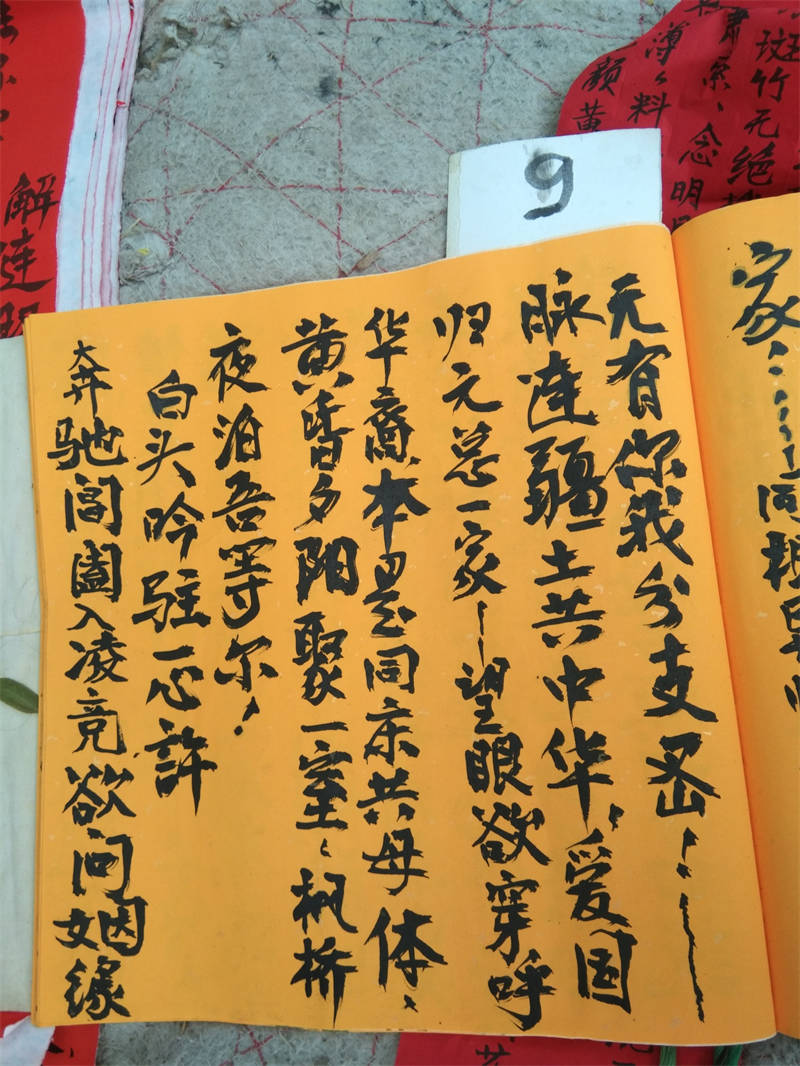 元有你我分支系、、
脉连疆土共中华、爱国
归元总一家、望眼欲穿呼
华裔本是同宗共母体、
黄昏夕阳聚一室、枫桥
夜泊吾等尔、
白头吟驻一心許
奔驰阊阖入凌竞欲问姻缘
9
家、
同根
斑竹无绝
念明
薄、料
颜黄
解连